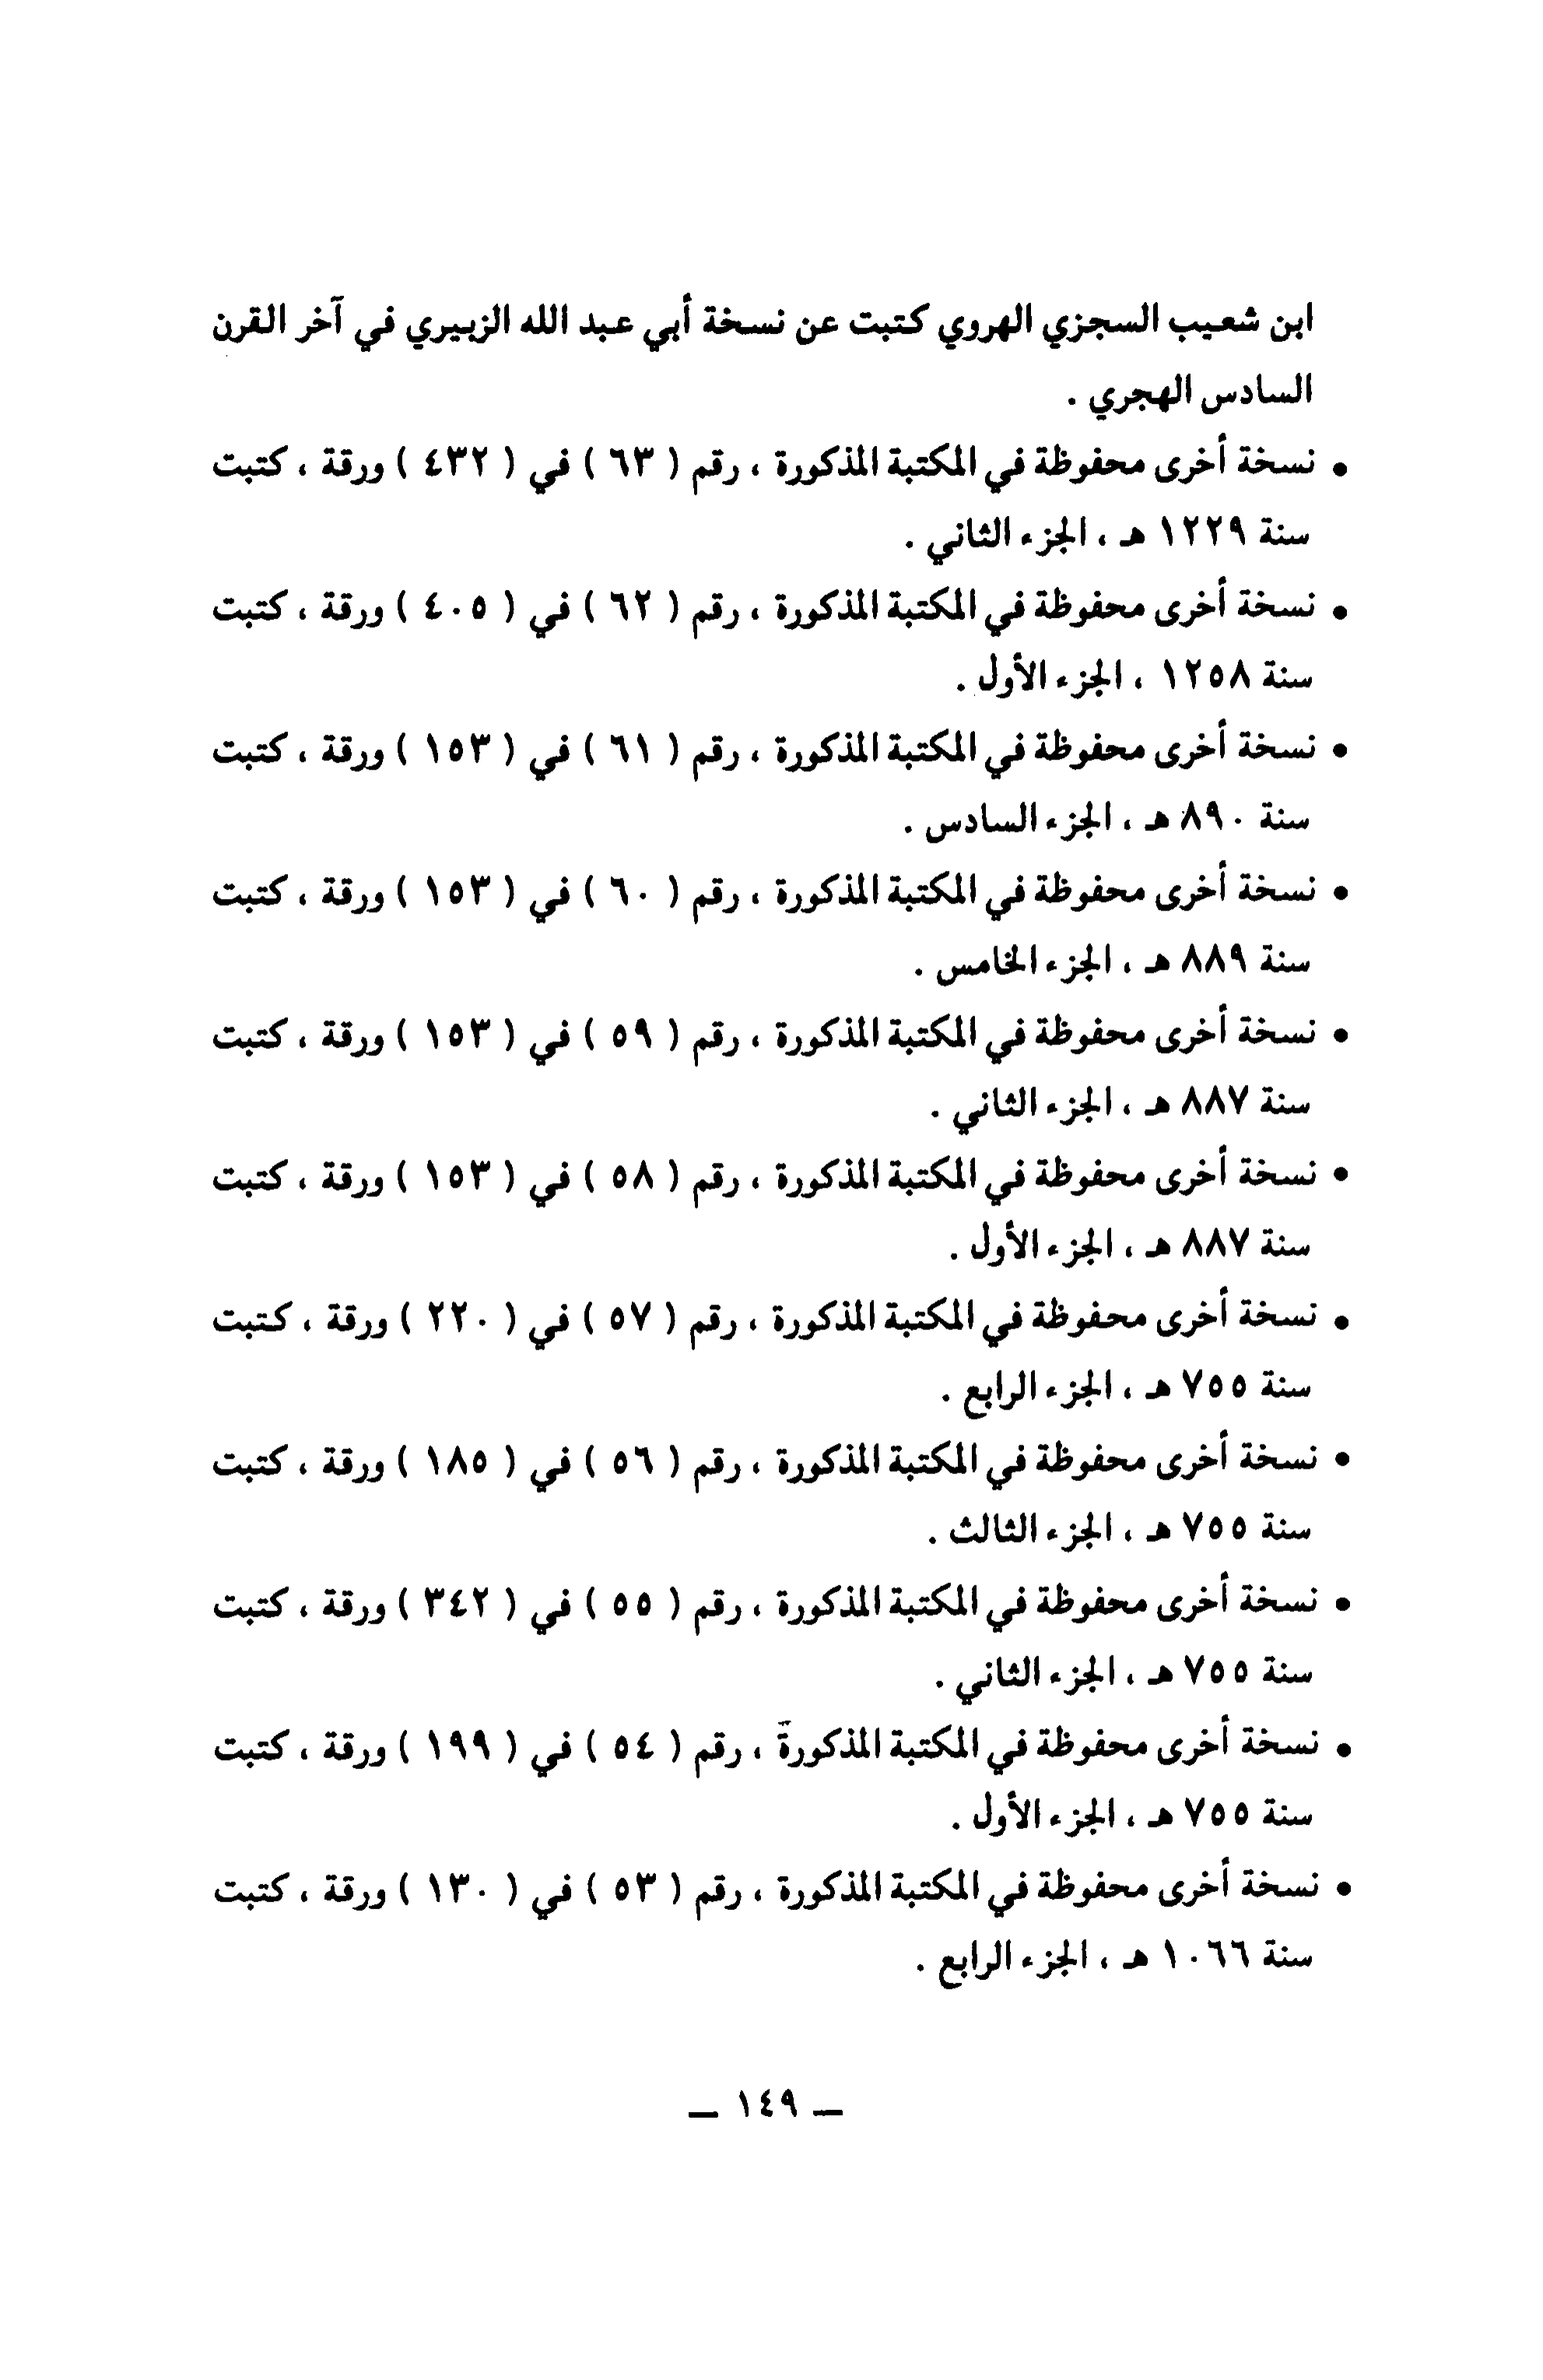 ابن شعيب السجزي الهروي كتبت عن نسخة أبي عبد الله الزبيري في آخر القرن
السادس الهجري .
• نسخة أخرى محفوظة في المكتبة المذكورة ، رقم ( ٦٣ ) في ( ٤٣٢ ) ورقة ، كتبت
سنة ١٢٢٩ هـ ، الجزء الثاني .
• نسخة أخرى محفوظة في المكتبة المذكورة ، رقم ( ٦٢ ) في ( ٤٠٥ ) ورقة ، كتبت
سنة ١٢٥٨ ، الجزء الأول .
• نسخة أخرى محفوظة في المكتبة المذكورة ، رقم ( ٦١ ) في ( ١٥٣ ) ورقة ، كتبت
سنة ٨٩٠ هـ ، الجزء السادس .
• نسخة أخرى محفوظة في المكتبة المذكورة ، رقم ( ٦٠ ) في ( ١٥٣ ) ورقة ، كتبت
سنة ٨٨٩ هـ ، الجزء الخامس .
• نسخة أخرى محفوظة في المكتبة المذكورة ، رقم ( ٥٩ ) في ( ١٥٣ ) ورقة ، كتبت
سنة ٨٨٧ هـ ، الجزء الثاني .
• نسخة أخرى محفوظة في المكتبة المذكورة ، رقم ( ٥٨ ) في ( ١٥٣ ) ورقة ، كتبت
سنة ٨٨٧ هـ ، الجزء الأول .
• نسخة أخرى محفوظة في المكتبة المذكورة ، رقم ( ٥٧ ) في ( ٢٢٠ ) ورقة ، كتبت
سنة ٧٥٥ هـ ، الجزء الرابع .
• نسخة أخرى محفوظة في المكتبة المذكورة ، رقم ( ٥٦ ) في ( ١٨٥ ) ورقة ، كتبت
سنة ٧٥٥ هـ ، الجزء الثالث .
• نسخة أخرى محفوظة في المكتبة المذكورة ، رقم ( ٥٥ ) في ( ٣٤٢ ) ورقة ، كتبت
سنة ٧٥٥ هـ ، الجزء الثاني .
• نسخة أخرى محفوظة في المكتبة المذكورة ، رقم ( ٥٤ ) في ( ١٩٩ ) ورقة ، كتبت
سنة ٧٥٥ هـ ، الجزء الأول .
• نسخة أخرى محفوظة في المكتبة المذكورة ، رقم ( ٥٣ ) في ( ١٣٠ ) ورقة ، كتبت
سنة ١٠٦٦ هـ ، الجزء الرابع .
ــ ١٤٩ ــ